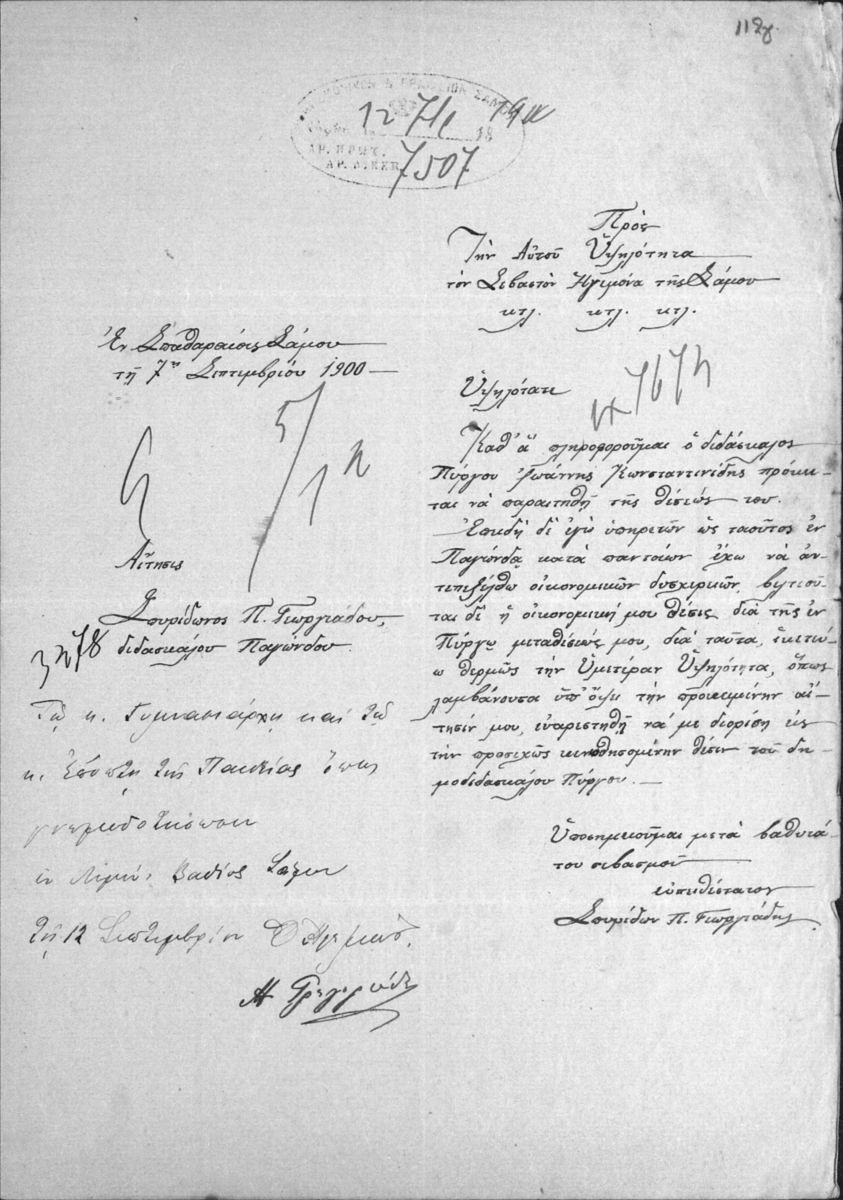 112γ
12 7/βρ 1900
18
ΑΡ. ΠΡΩΤ.
ΑΡ. ΔΙΕΚΠ.
7507
Πρὸς
Τὴν Αὐτοῦ Ὑψηλότητα
τὸν Σεβαστὸν Ἡγεμόνα τῆς Σάμου
κτλ. κτλ. κτλ.
Ἐν Σπαθαραίοις Σάμου
τῇ 7ῃ Σεπτεμβρίου 1900 —
Αἴτησις
Σπυρίδωνος Π. Γεωργιάδου,
διδασκάλου Παγώνδου.
Ὑψηλότατε
Καθ' ἃ πληροφοροῦμαι ὁ διδάσκαλος
Πύργου Ἰωάννης Κωνσταντινίδης πρόκει-
ται νὰ παραιτηθῇ τῆς θέσεώς του.
Ἐπειδὴ δὲ ἐγὼ ὑπηρετῶν ὡς τοιοῦτος ἐν
Παγώνδᾳ κατὰ παντοίων ἔχω νὰ ἀν-
τεπεξέλθω οἰκονομικῶν δυσχερειῶν, βελτιοῦ-
ται δὲ ἡ οἰκονομική μου θέσις διὰ τῆς ἐν
Πύργῳ μεταθέσεώς μου, διὰ ταῦτα, ἱκετεύ-
ω θερμῶς τὴν Ὑμετέραν Ὑψηλότητα, ὅπως
λαμβάνουσα ὑπ' ὄψει τὴν προκειμένην αἴ-
τησίν μου, εὐαρεστηθῇ νά με διορίσῃ εἰς
τὴν προσεχῶς κενωθησομένην θέσιν τοῦ δη-
μοδιδασκάλου Πύργου. —
Ὑποσημειοῦμαι μετὰ βαθυτά-
του σεβασμοῦ
εὐπειθέστατος
Σπυρίδων Π. Γεωργιάδης
Τῷ κ. Γυμνασιάρχῃ καὶ τῷ
κ. Ἐπόπτῃ τῆς Παιδείας ὅπως
γνωμοδοτήσωσιν
ἐν Λιμένι Βαθέος Σάμου
τῇ 12 Σεπτεμβρίου